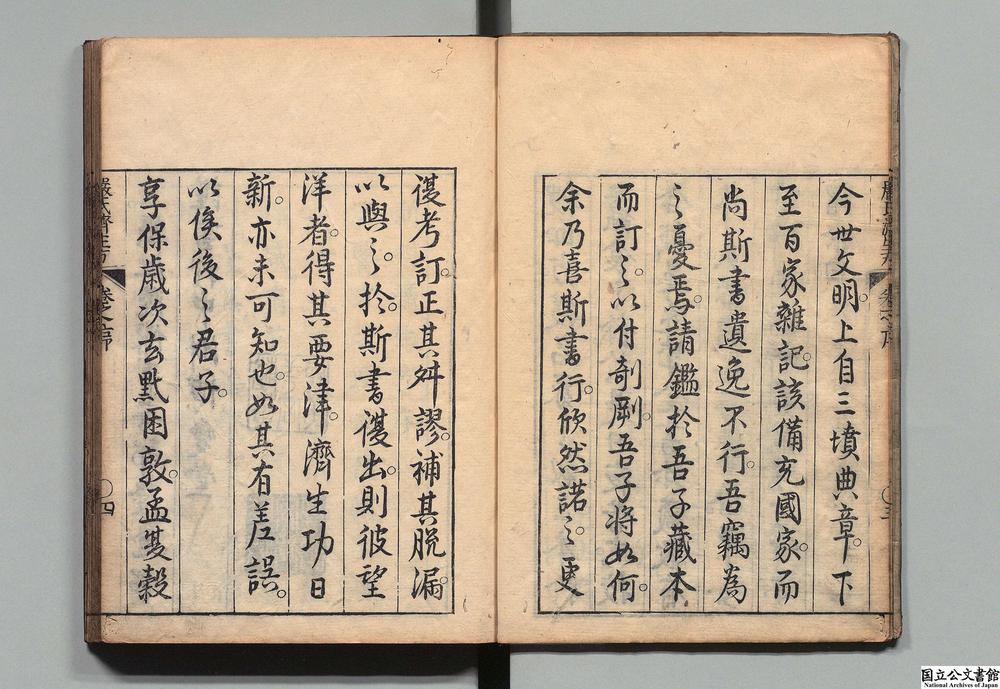 今世文明。上自三墳典章。下
至百家雜記。該備充國家。而
尚斯書遺逸不行。吾竊為
之憂焉。請鑑於吾子藏本
而訂之。以付剞劂。吾子將如何。
余乃喜斯書行。欣然諾之。更
復考訂。正其舛謬。補其脫漏。
以與之。於斯書復出。則彼望
洋者。得其要津。濟生功日
新。亦未可知也。如其有差誤。
以俟後之君子。
享保歳次玄黓困敦。孟夏穀
四
国立公文書館
National Archives of Japan